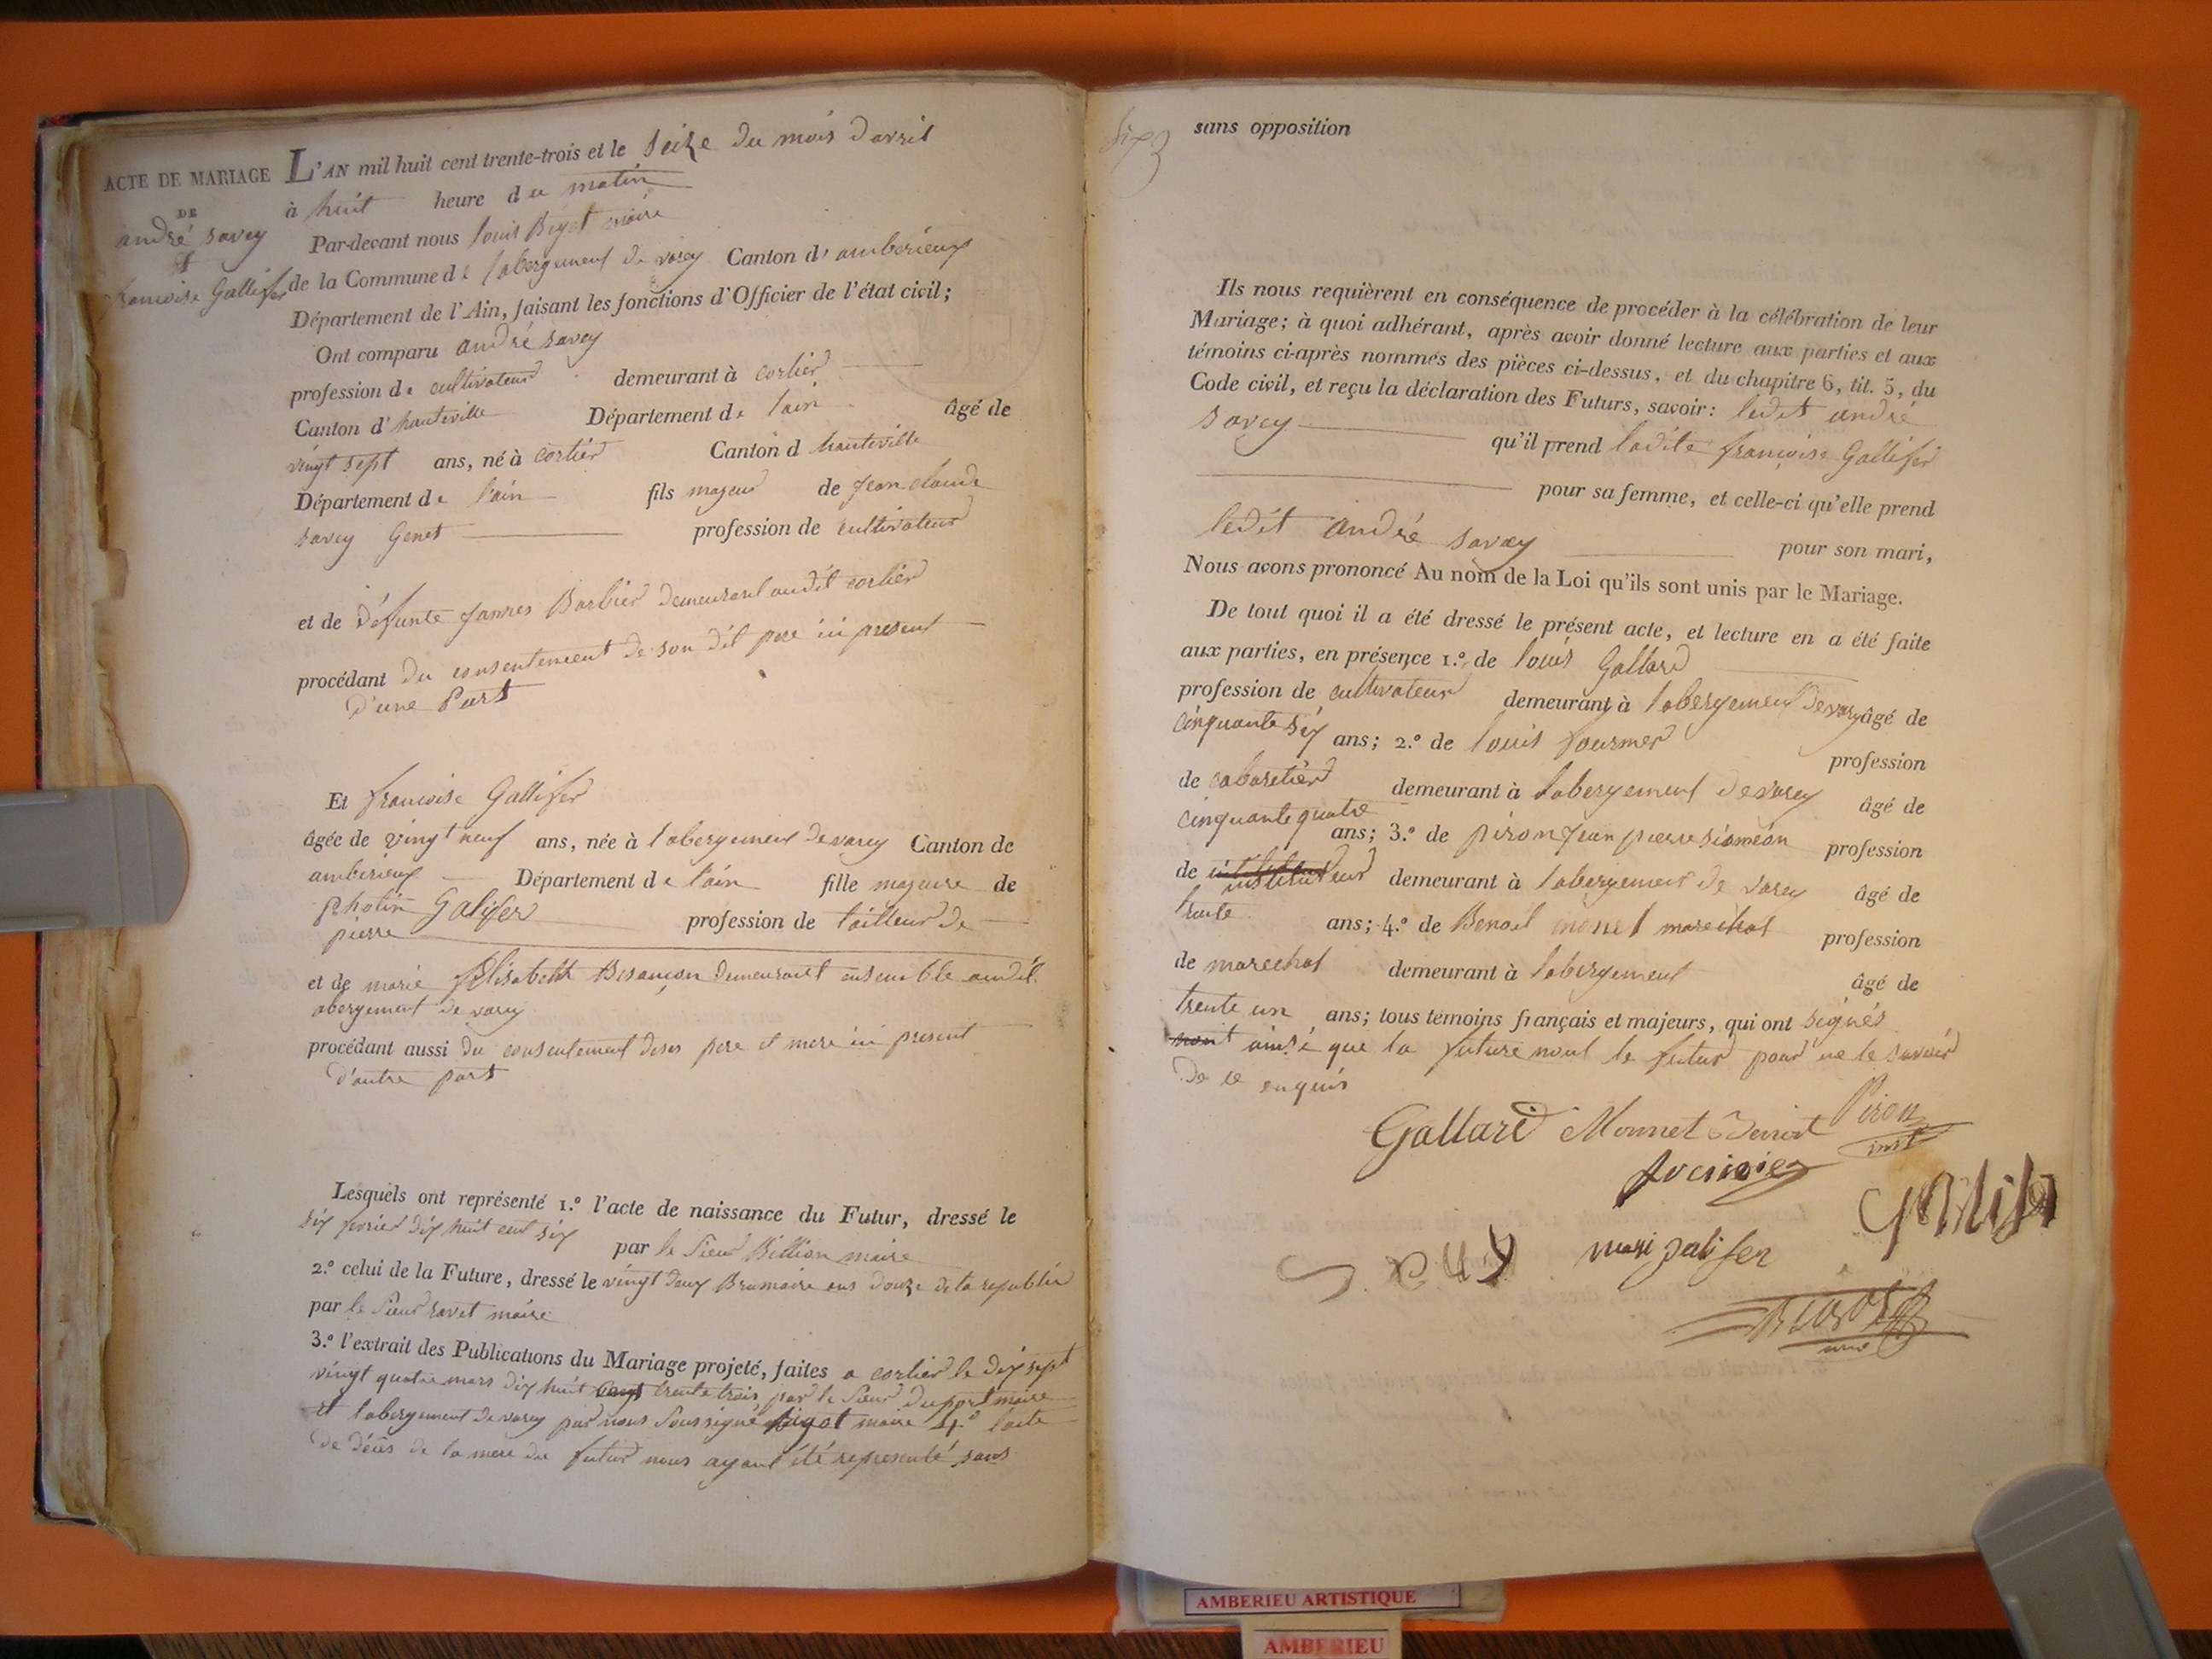 ACTE DE MARIAGE
DE
andré savey
&
francoise Gallifer
L'AN mil huit cent trente-trois et le seize du mois d'avril
à huit heure du matin
Par-devant nous louis Bigot maire
de la Commune de labergement de varey Canton d'amberieux
Département de l'Ain, faisant les fonctions d'Officier de l'état civil;
Ont comparu andré savey
profession de cultivateur demeurant à corlier
Canton d'hauteville Département de l'ain âgé de
vingt sept ans, né à corlier Canton d hauteville
Département de l'ain fils majeur de jean claude
savey Genet profession de cultivateur
et de défunte Barbier demeurant audit corlier
procédant du consentement de son dit pere ici present
d'une Part
Et francoise Gallifer
âgée de vingt neuf ans, née à labergement de varey Canton de
amberieux Département de l'ain fille majeure de
pholin Galifer profession de tailleur de
pierre
et de marie Elisabeth Besançon demeurant ensemble audit
abergement de varey
procédant aussi du consentement de ses pere et mere ici present
d'autre part
Lesquels ont représenté 1.º l'acte de naissance du Futur, dressé le
six fevrier dix huit cent six par le Sieur Billion maire
2.º celui de la Future, dressé le vingt deux Brumaire ans douze de la republic
par le Sieur savet maire
3.º l'extrait des Publications du Mariage projeté, faites a corlier le dix sept
vingt quatre mars dix huit cent trente trois, par le Sieur Dupont maire
et labergement de varey par nous soussigné Bigot maire 4.º l'acte
de décès de la mere du futur nous ayant été representé sans
sans opposition
Ils nous requièrent en conséquence de procéder à la célébration de leur
Mariage; à quoi adhérant, après avoir donné lecture aux parties et aux
témoins ci-après nommés des pièces ci-dessus, et du chapitre 6, tit. 5, du
Code civil, et reçu la déclaration des Futurs, savoir: ledit andré
savey qu'il prend ladite françoise Gallifer
pour sa femme, et celle-ci qu'elle prend
ledit andré savey pour son mari,
Nous avons prononcé Au nom de la Loi qu'ils sont unis par le Mariage.
De tout quoi il a été dressé le présent acte, et lecture en a été faite
aux parties, en présence 1.º de louis Gallard
profession de cultivateur demeurant à labergement de varey âgé de
cinquante six ans; 2.º de louis fournier profession
de cabaretier demeurant à labergement de varey âgé de
cinquante quatre ans; 3.º de piron jean pierre siméon profession
de instituteur demeurant à labergement de varey âgé de
trente ans; 4.º de Benoit monet marechal profession
de marechal demeurant à labergement âgé de
trente un ans; tous témoins français et majeurs, qui ont signés
ainsi que la future nont le futur pour ne le savoir
de ce enquis
Gallard Monnet Benoit Piron
inst
fournier
Galifer
mari galifer
Bigot